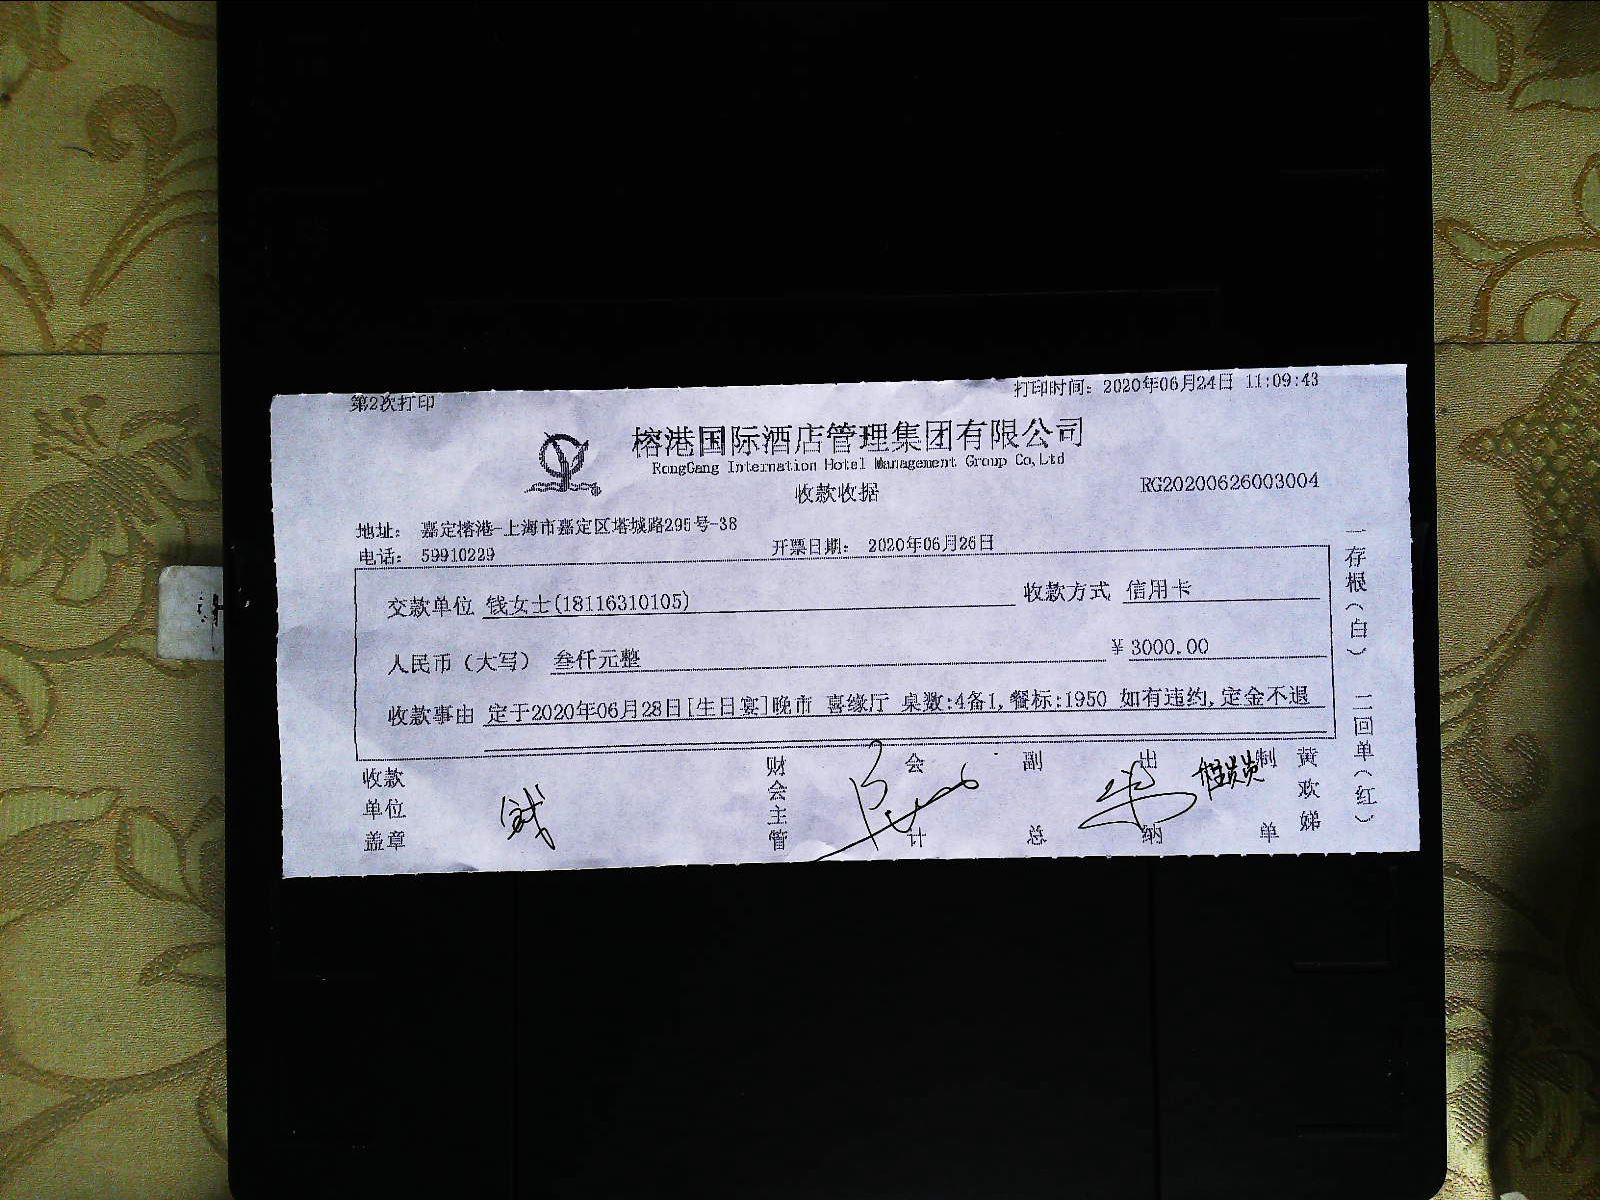 第2次打印
打印时间：2020年06月24日 11:09:43
榕港国际酒店管理集团有限公司
RongGang Internation Hotel Management Group Co,Ltd
收款收据
RG20200626003004
地址： 嘉定榕港-上海市嘉定区塔城路295号-38
电话： 59910229
开票日期： 2020年06月26日
交款单位 钱女士(18116310105)
收款方式 信用卡
人民币（大写） 叁仟元整
￥ 3000.00
收款事由 定于2020年06月28日[生日宴]晚市 喜缘厅 桌数:4备1,餐标:1950 如有违约,定金不退
收款单位盖章
财会主管
会计
副总
出纳
制单
黄欢娣
一存根（白） 二回单（红）